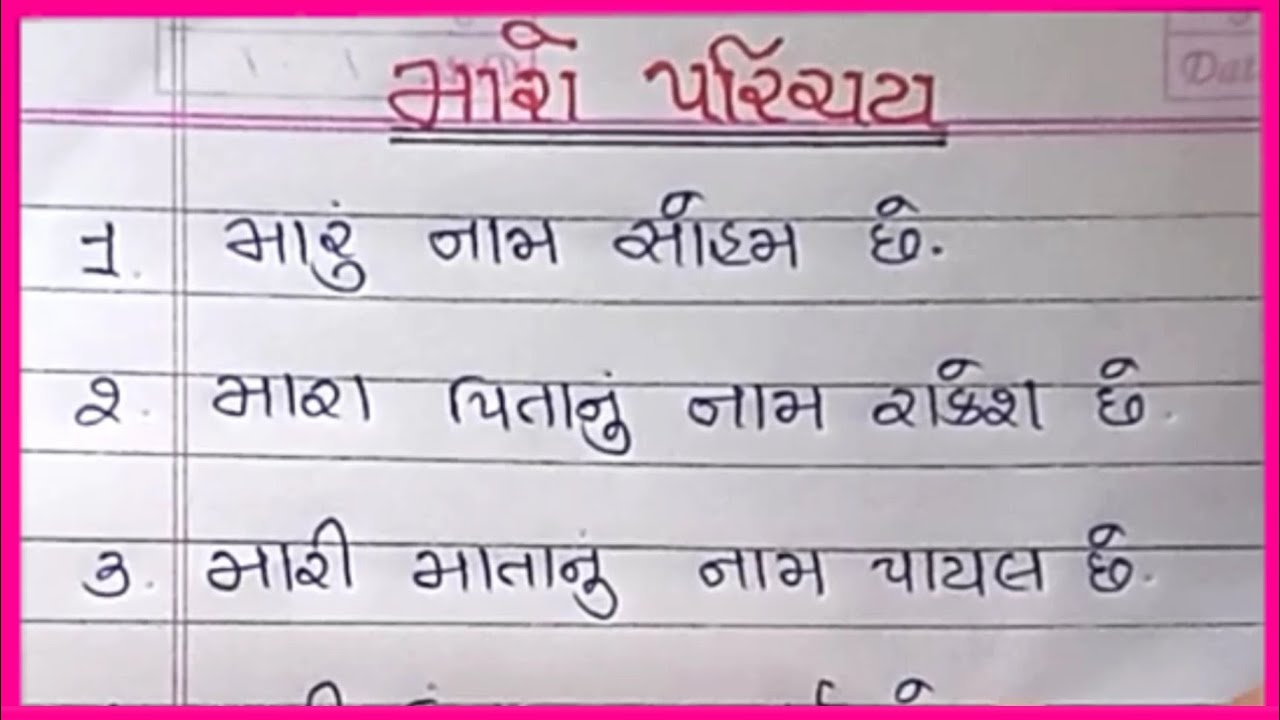 મારો પરિચય
Dat
૧. મારું નામ સોહમ છે.
૨. મારા પિતાનું નામ રાકેશ છે.
૩. મારી માતાનું નામ પાયલ છે.